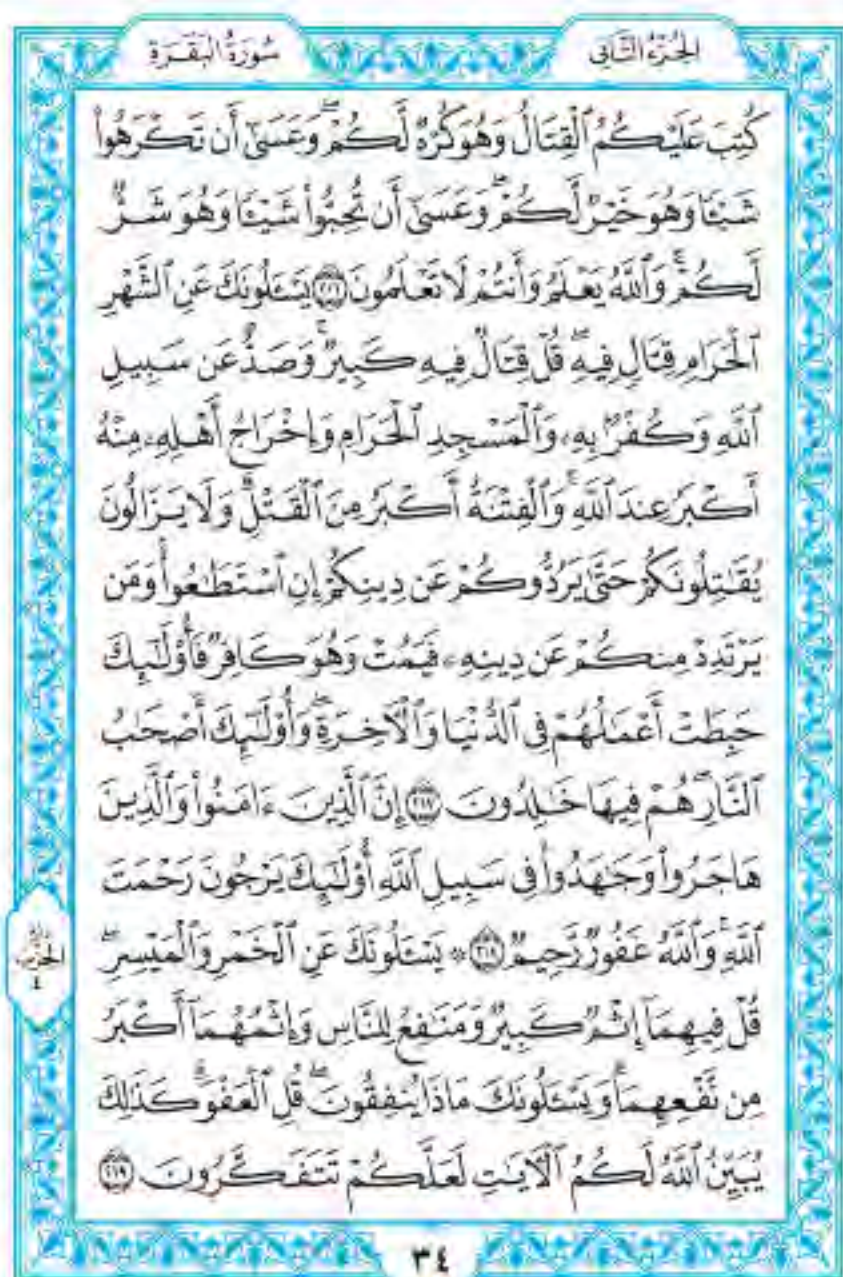 الجُزْءُ الثَّانِى
سُورَةُ البَقَرَةِ
كُتِبَ عَلَيْكُمُ ٱلْقِتَالُ وَهُوَ كُرْهٌ لَّكُمْ ۖ وَعَسَىٰٓ أَن تَكْرَهُوا۟
شَيْـًٔا وَهُوَ خَيْرٌ لَّكُمْ ۖ وَعَسَىٰٓ أَن تُحِبُّوا۟ شَيْـًٔا وَهُوَ شَرٌّ
لَّكُمْ ۗ وَٱللَّهُ يَعْلَمُ وَأَنتُمْ لَا تَعْلَمُونَ ٢١٦ يَسْـَٔلُونَكَ عَنِ ٱلشَّهْرِ
ٱلْحَرَامِ قِتَالٍ فِيهِ ۖ قُلْ قِتَالٌ فِيهِ كَبِيرٌ ۖ وَصَدٌّ عَن سَبِيلِ
ٱللَّهِ وَكُفْرٌۢ بِهِۦ وَٱلْمَسْجِدِ ٱلْحَرَامِ وَإِخْرَاجُ أَهْلِهِۦ مِنْهُ
أَكْبَرُ عِندَ ٱللَّهِ ۚ وَٱلْفِتْنَةُ أَكْبَرُ مِنَ ٱلْقَتْلِ ۗ وَلَا يَزَالُونَ
يُقَـٰتِلُونَكُمْ حَتَّىٰ يَرُدُّوكُمْ عَن دِينِكُمْ إِنِ ٱسْتَطَـٰعُوا۟ ۚ وَمَن
يَرْتَدِدْ مِنكُمْ عَن دِينِهِۦ فَيَمُتْ وَهُوَ كَافِرٌ فَأُو۟لَـٰٓئِكَ
حَبِطَتْ أَعْمَـٰلُهُمْ فِى ٱلدُّنْيَا وَٱلْـَٔاخِرَةِ ۖ وَأُو۟لَـٰٓئِكَ أَصْحَـٰبُ
ٱلنَّارِ ۖ هُمْ فِيهَا خَـٰلِدُونَ ٢١٧ إِنَّ ٱلَّذِينَ ءَامَنُوا۟ وَٱلَّذِينَ
هَاجَرُوا۟ وَجَـٰهَدُوا۟ فِى سَبِيلِ ٱللَّهِ أُو۟لَـٰٓئِكَ يَرْجُونَ رَحْمَتَ
ٱللَّهِ ۚ وَٱللَّهُ غَفُورٌ رَّحِيمٌ ٢١٨ ۞ يَسْـَٔلُونَكَ عَنِ ٱلْخَمْرِ وَٱلْمَيْسِرِ ۖ
قُلْ فِيهِمَآ إِثْمٌ كَبِيرٌ وَمَنَـٰفِعُ لِلنَّاسِ وَإِثْمُهُمَآ أَكْبَرُ
مِن نَّفْعِهِمَا ۗ وَيَسْـَٔلُونَكَ مَاذَا يُنفِقُونَ ۖ قُلِ ٱلْعَفْوَ ۗ كَذَٰلِكَ
يُبَيِّنُ ٱللَّهُ لَكُمُ ٱلْـَٔايَـٰتِ لَعَلَّكُمْ تَتَفَكَّرُونَ ٢١٩
الحِزْب
٤
٣٤